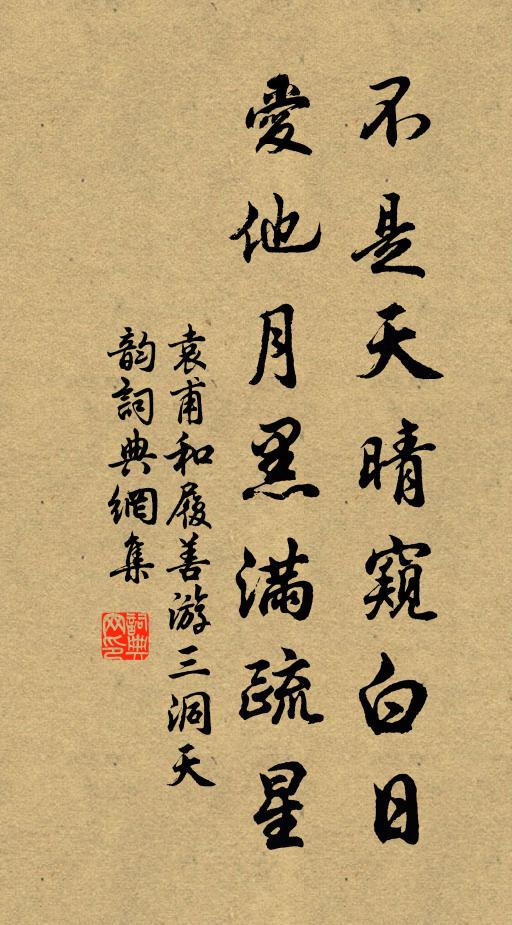 不是天晴窺白日
愛他月黑滿疏星
袁甫和履善游三洞天
韵詞典網集
詞典
网印